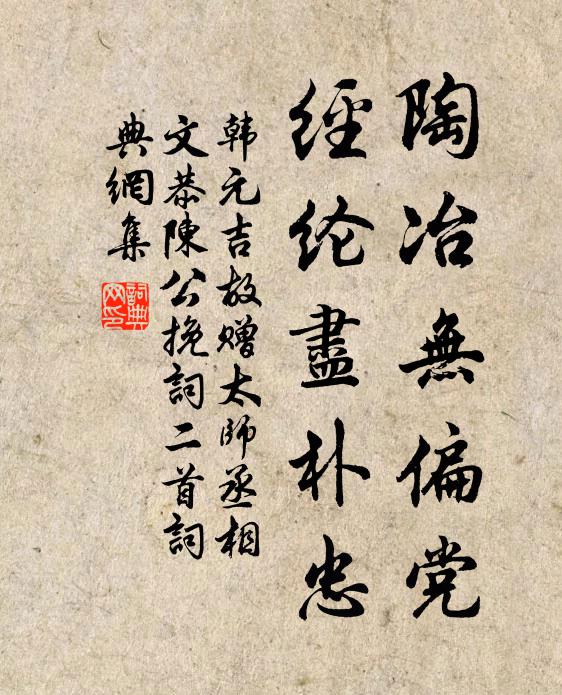 陶冶無偏党
經纶盡朴忠
韩元吉故赠太師丞相
文恭陳公挽詞二首詞
典網集
詞典网印